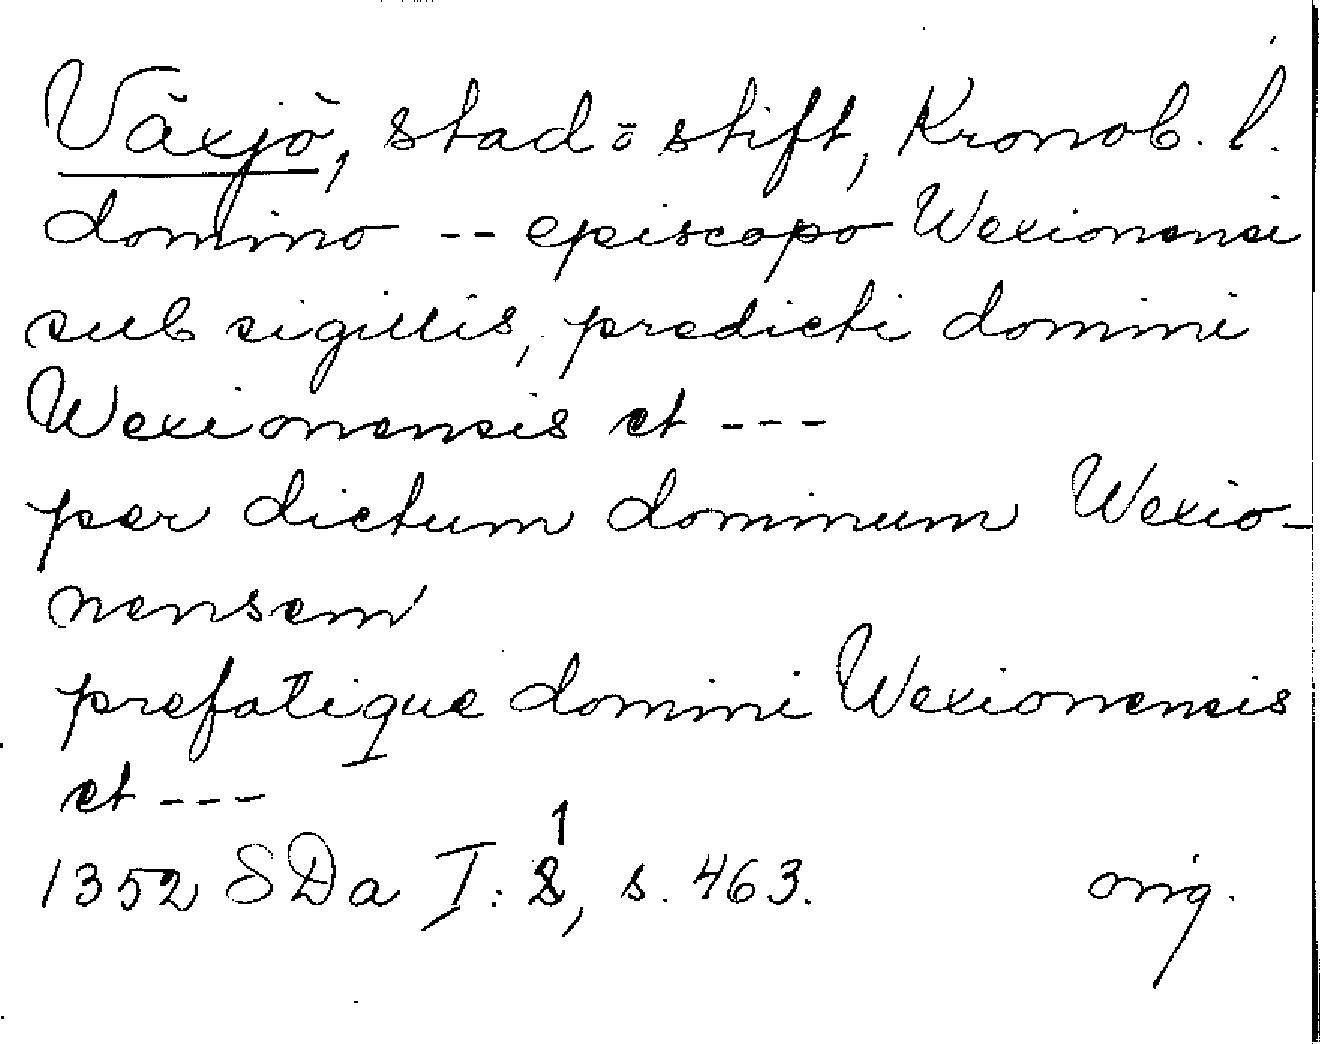 Växjö, stad o stift, Kronob. l.
domino -- episcopo Wexionensi
sub sigillis, predicti domini
Wexionensis et ---
per dictum dominum Wexio-
nensem
prefatique domini Wexionensis
et ---
1352 SDa I: 1, s. 463. orig.